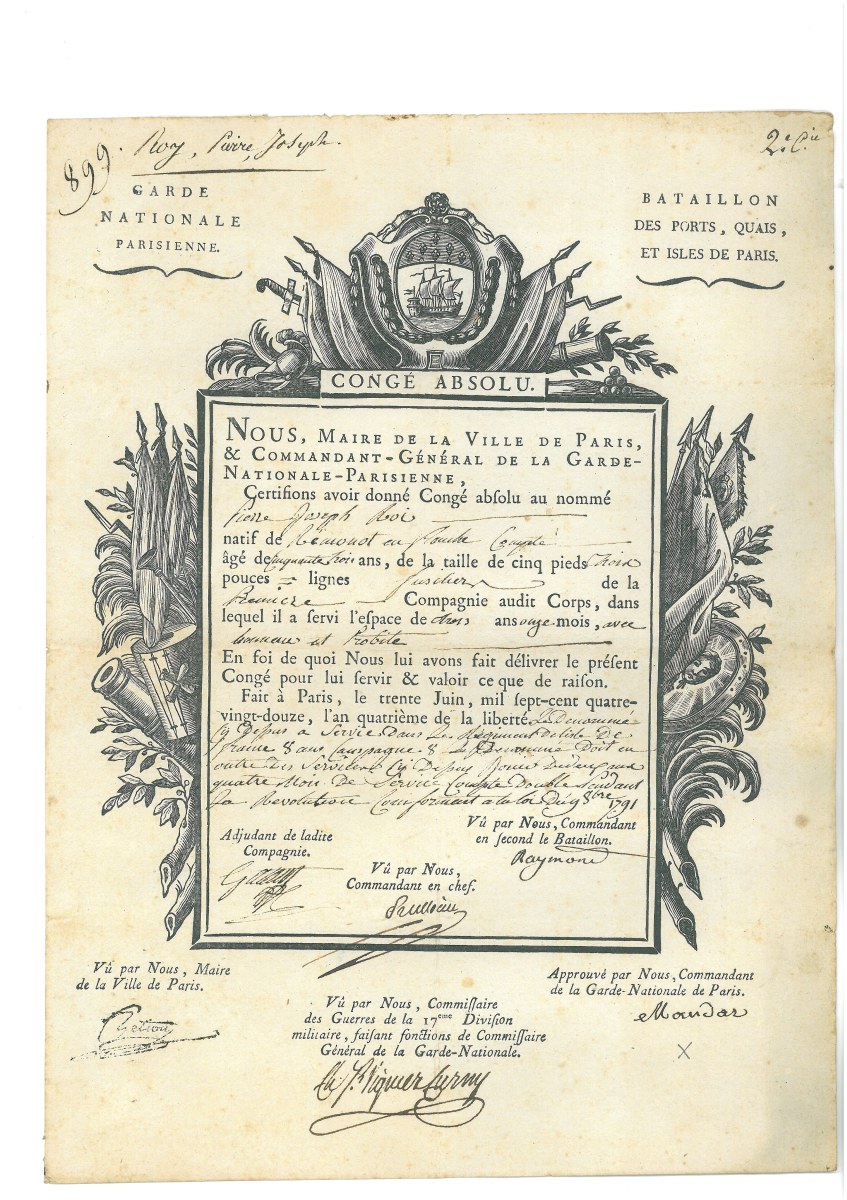 899.
Roy, Pierre, Joseph.
2.e C.ie
GARDE
NATIONALE
PARISIENNE.
BATAILLON
DES PORTS, QUAIS,
ET ISLES DE PARIS.
CONGÉ ABSOLU.
NOUS, MAIRE DE LA VILLE DE PARIS,
& COMMANDANT-GÉNÉRAL DE LA GARDE-
NATIONALE-PARISIENNE,
Certifions avoir donné Congé absolu au nommé
Pierre Joseph Roi
natif de en franche Compté
âgé de cinquante trois ans, de la taille de cinq pieds trois
pouces = lignes fuselier de la
Premiere Compagnie audit Corps, dans
lequel il a servi l'espace de trois ans onze mois, avec
honneur et Probité
En foi de quoi Nous lui avons fait délivrer le présent
Congé pour lui servir & valoir ce que de raison.
Fait à Paris, le trente Juin, mil sept-cent quatre-
vingt-douze, l'an quatrième de la liberté. Le Denommé
Cy Dessus a Servie Dans Le Régiment De
france 8 ans Campagne 8 Le Denommé Doit en
outre Des Services Cy Dessus Jouir De
quatre Mois De Service Compté Double Pendant
La Revolution Conformement a la loi Du 8bre 1791
Vû par Nous, Commandant
en second le Bataillon.
Raymond
Adjudant de ladite
Compagnie.
Vû par Nous,
Commandant en chef.
Vû par Nous, Maire
de la Ville de Paris.
Petion
Approuvé par Nous, Commandant
de la Garde-Nationale de Paris.
Mandat
Vû par Nous, Commissaire
des Guerres de la 17eme Division
militaire, faisant fonctions de Commissaire
Général de la Garde-Nationale.
X